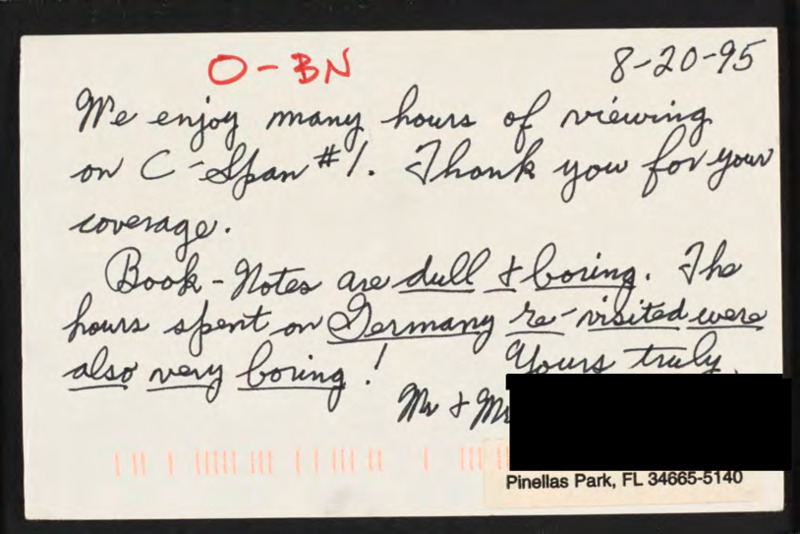 O-BN
8-20-95
We enjoy many hours of viewing
on C-Span #1. Thank you for your
coverage.
Book-Notes are dull & boring. The
hours spent on Germany re-visited were
also very boring!
Yours truly,
Mr & Mr
Pinellas Park, FL 34665-5140